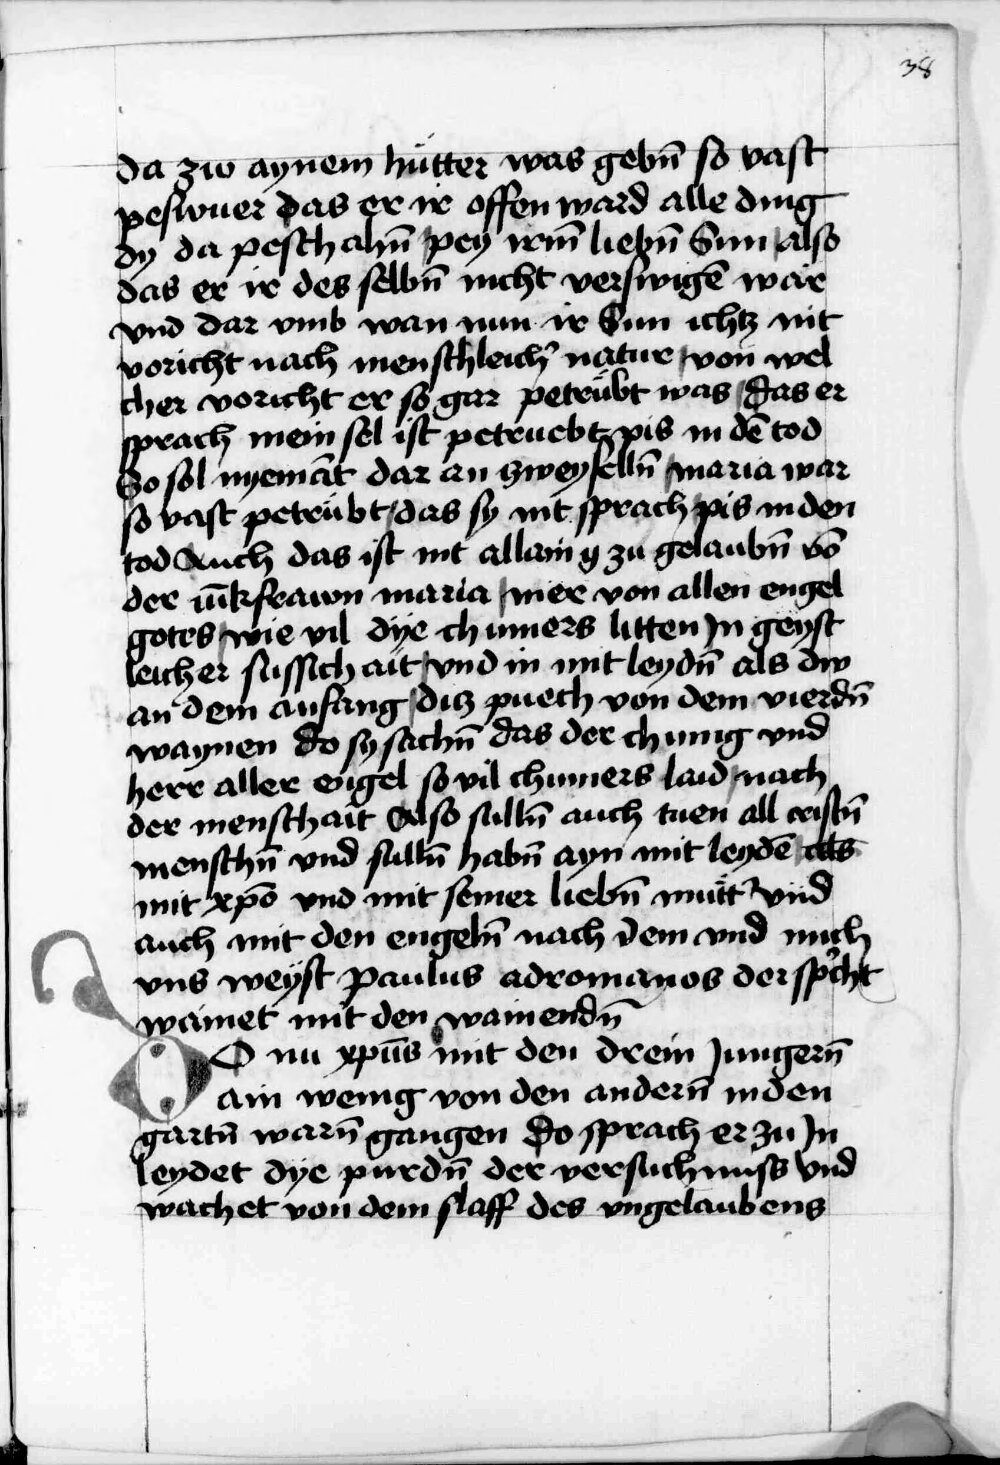 38
da zw aynem hütter was gebn̄ so vast
peswuer das er ir offen ward alle ding
dy da peschahn̄ pey irm̄ liebn̄ Sun also
das er ir des selbn̄ nicht verswigē wär
vnd dar vmb wan nun ir Sun ichtz nit
voricht nach menschleich' natur von wel
cher voricht er so gar petrübt was das er
sprach mein sel ist petruebt pis in dē tod
So sol nyemāt dar an zweyfelln̄ maria war
so vast petrübt das sy nit sprach pis in den
tod Auch das ist nit allain zu gelaubn̄ vō
der iūkfrawn maria mer von allen engel
gotes wie vil dye chumers litten Jn geyst
leicher sussichait vnd in mit leydn̄ als dw
an dem anfang ditz puech von dem vierdn̄
waynen do sy sachn̄ das der chunig vnd
herr aller engel so vil chumers laid nach
der menschait Also sulln̄ auch tuen all cristn̄
menschn̄ vnd sulln̄ habn̄ ayn mit leydē als
mit xpō vnd mit seiner liebn̄ mütt' vnd
auch mit den engeln̄ nach dem vnd
vns weyst Paulus adromanos der sp'cht
wainet mit den wainendn̄
DO nu xpūs mit den drein Jungern̄
ain wenig von den andern̄ in den
gartn̄ warn̄ gangen do sprach er zu Jn
leydet dye purdn̄ der versuchnuss vnd
wachet von dem slaff des vngelaubens